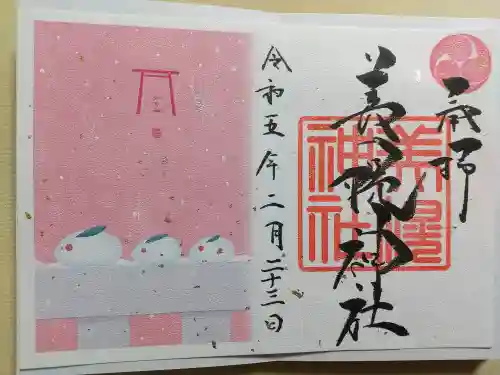 奉拝
美幌神社
美幌神社
令和五年二月二十三日